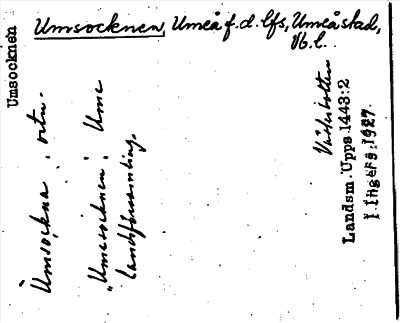 Umsocknen
Umsocknen, Umeå f.d. lfs, Umeå stad,
Vb.l.
Umsockna, ortn.
"Umesocknen", Ume
landsförsamling.
Västerbotten
Landsm. Upps. 1443:2
I. Ingers. 1927.